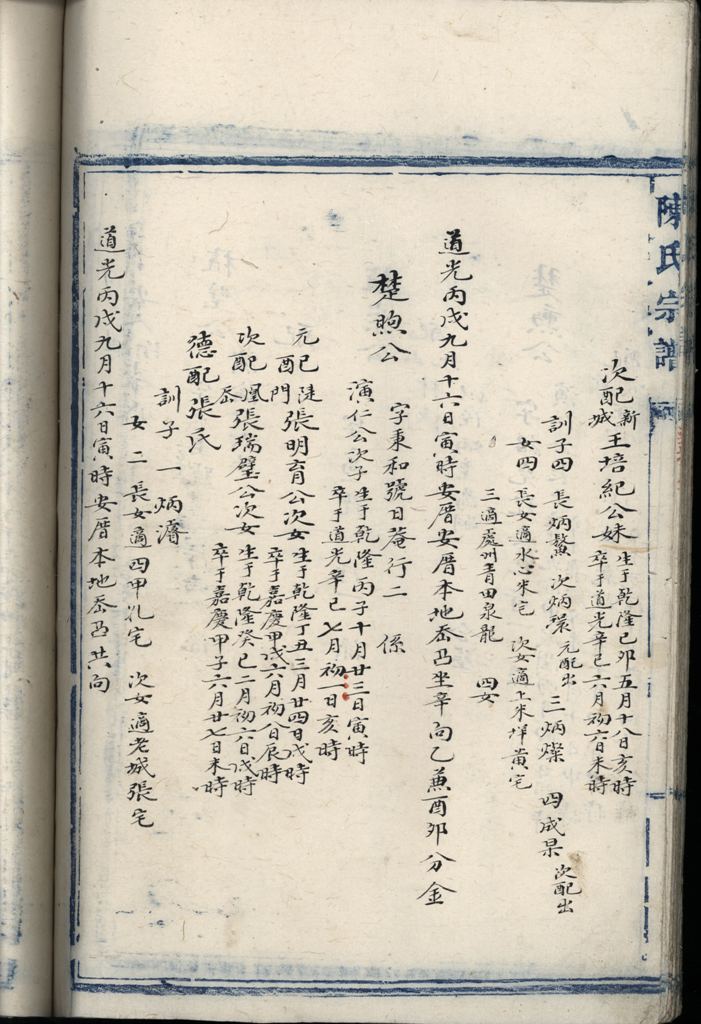 陳氏宗譜
次配新城王培紀公妹 生于乾隆己卯五月十八日亥時
卒于道光辛巳六月初六日未時
訓子四 長炳鰲 次炳 元配出 三炳燦 四成杲 次配出
女四 長女適水心朱宅 次女適上米垟黃宅
三適處州青田泉龍 四女
道光丙戌九月十六日寅時安厝安厝本地岙凸坐辛向乙兼酉卯分金
楚煦公 字秉和號日菴行二 係
演仁公次子 生于乾隆丙子十月廿三日寅時
卒于道光辛巳七月初一日亥時
元配陡門張明育公次女 生于乾隆丁丑三月廿四日戌時
卒于嘉慶甲戌六月初八日辰時
次配凰岙張瑞璧公次女 生于乾隆癸巳二月初六日戌時
卒于嘉慶甲子六月廿七日未時
德配張氏
訓子一 炳濬
女二 長女適四甲孔宅 次女適老城張宅
道光丙戌九月十六日寅時安厝本地岙凸共向